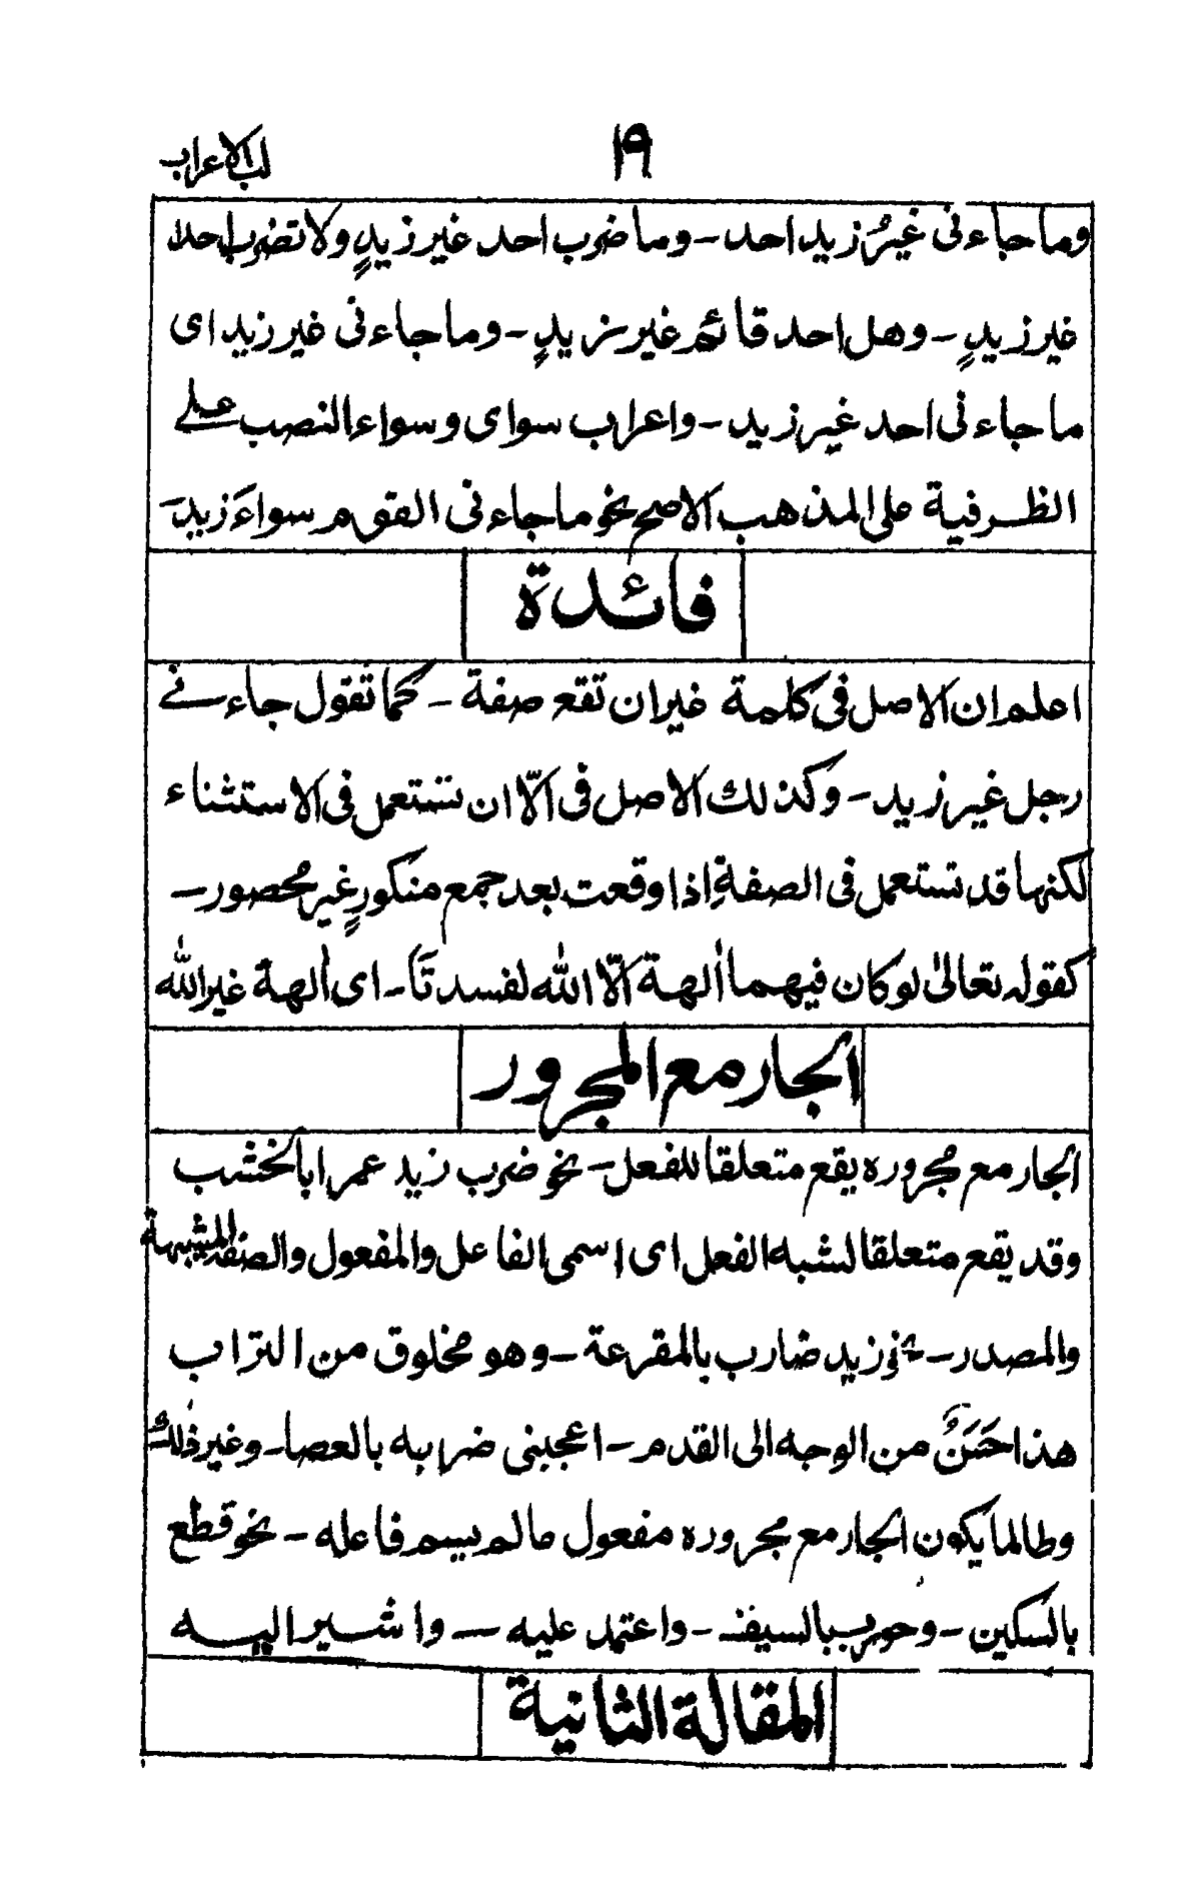 لب الاعراب
١٩
وما جاءنی غیرُ زید احد ـ وما ضرب احد غیر زیدٍ ولا تضرب احدا
غیر زیدٍ ـ وهل احد قائم غیر زیدٍ ـ وما جاءنی غیر زید ای
ما جاءنی احد غیر زید ـ واعراب سوای وسواء النصب علی
الظرفیة علی المذهب الاصح نحو ما جاءنی القوم سواءَ زیدٍ
فائدة
اعلم ان الاصل فی کلمة غیر ان تقع صفة ـ کما تقول جاءنی
رجل غیر زید ـ وکذلك الاصل فی الّا ان تستعمل فی الاستثناء
لکنها قد تستعمل فی الصفةِ اذا وقعت بعد جمع منکورٍ غیر محصور ـ
کقوله تعالیٰ لو کان فیهما اٰلهة الّا الله لفسدتَا ـ ای اٰلهة غیر الله
الجار مع المجرور
الجار مع مجروره یقع متعلقا للفعل ـ نحو ضرب زید عمرا بالخشب
وقد یقع متعلقا لشبه الفعل ای اسمی الفاعل والمفعول والصفة المشبهة
والمصدر ـ نحو زید ضارب بالمقرعة ـ وهو مخلوق من التراب
هذا حَسَنٌ من الوجه الی القدم ـ اعجبنی ضرابه بالعصا ـ وغیر ذٰلك
وطالما یکون الجار مع مجروره مفعول ما لم یسم فاعله ـ نحو قطع
بالسکین ـ وضرب بالسیف ـ واعتمد علیه ـ واشیر الیه
المقالة الثانیة